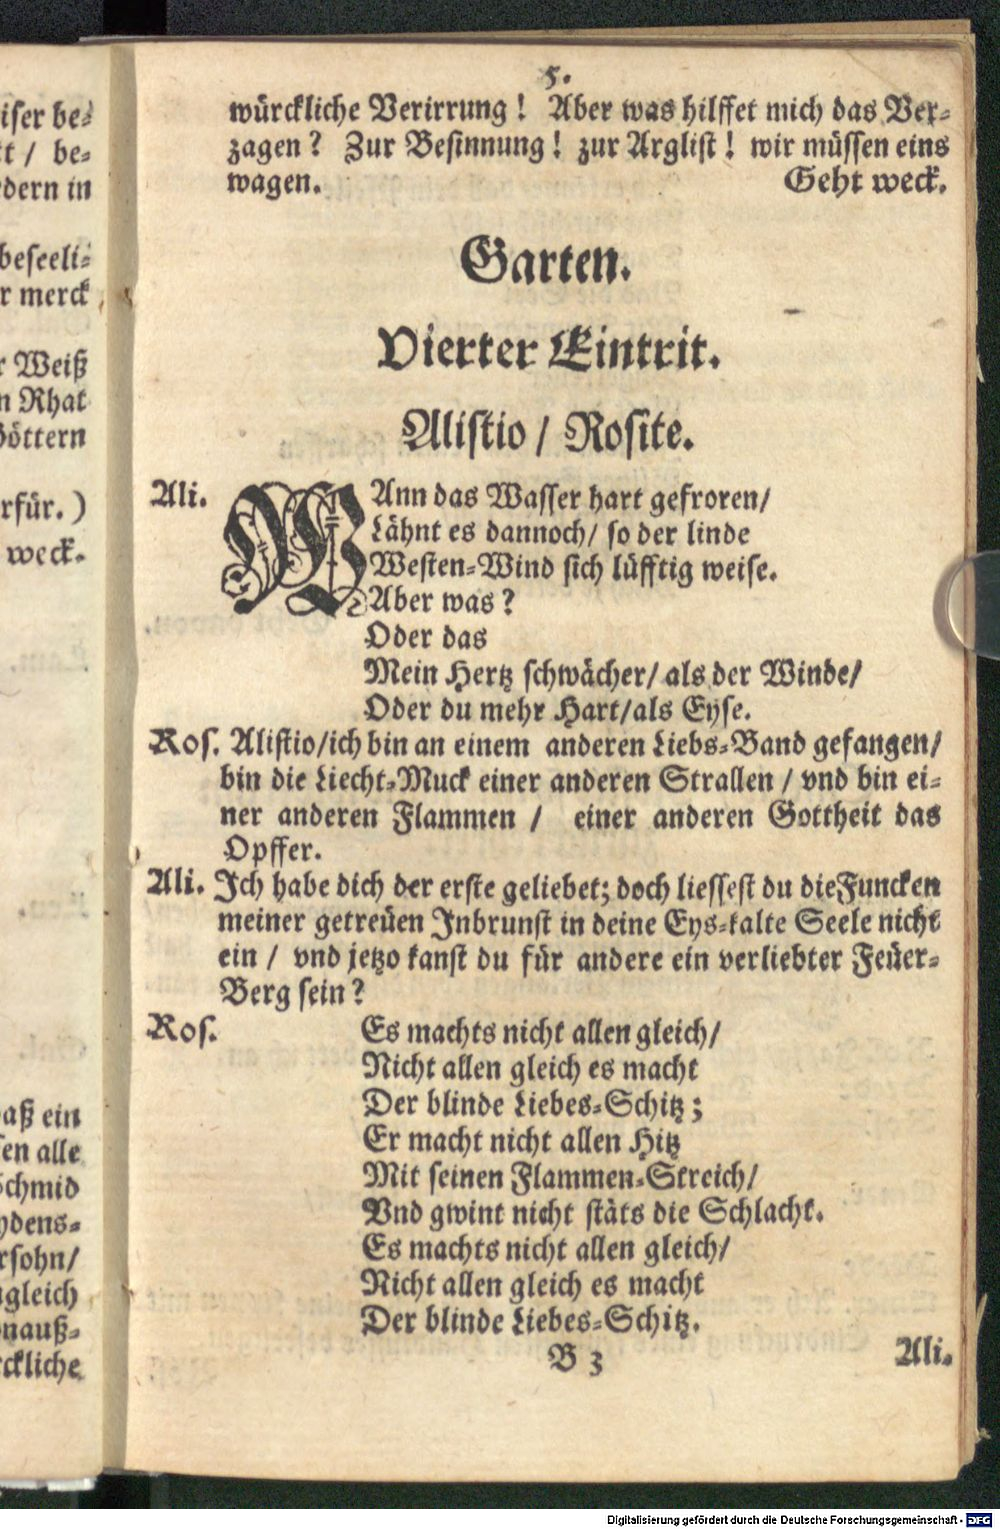 iser be-
tt / be-
dern in
beseeli-
r merck
r Weiß
n Rhat
Göttern
rfür. )
weck.
daß ein
sen alle
Schmid
ydens-
rsohn/
ngleich
nauß-
ckliche
5.
würckliche Verirrung! Aber was hilffet mich das Ver-
zagen? Zur Besinnung! zur Arglist! wir müssen eins
wagen. Geht weck.
Garten.
Vierter Eintrit.
Alistio / Rosite.
Ali. WAnn das Wasser hart gefroren/
Lähnt es dannoch/ so der linde
Westen-Wind sich lüfftig weise.
Aber was?
Oder das
Mein Hertz schwächer/ als der Winde/
Oder du mehr Hart/als Eyse.
Ros. Alistio/ich bin an einem anderen Liebs-Band gefangen/
bin die Liecht-Muck einer anderen Strallen / vnd bin ei-
ner anderen Flammen / einer anderen Gottheit das
Opffer.
Ali. Ich habe dich der erste geliebet; doch liessest du die Funcken
meiner getreüen Inbrunst in deine Eys-kalte Seele nicht
ein / vnd jetzo kanst du für andere ein verliebter Feüer-
Berg sein?
Ros. Es machts nicht allen gleich/
Nicht allen gleich es macht
Der blinde Liebes-Schitz;
Er macht nicht allen Hitz
Mit seinen Flammen-Streich/
Vnd gwint nicht stäts die Schlacht.
Es machts nicht allen gleich/
Nicht allen gleich es macht
Der blinde Liebes-Schitz.
B 3 Ali.
Digitalisierung gefördert durch die Deutsche Forschungsgemeinschaft - DFG